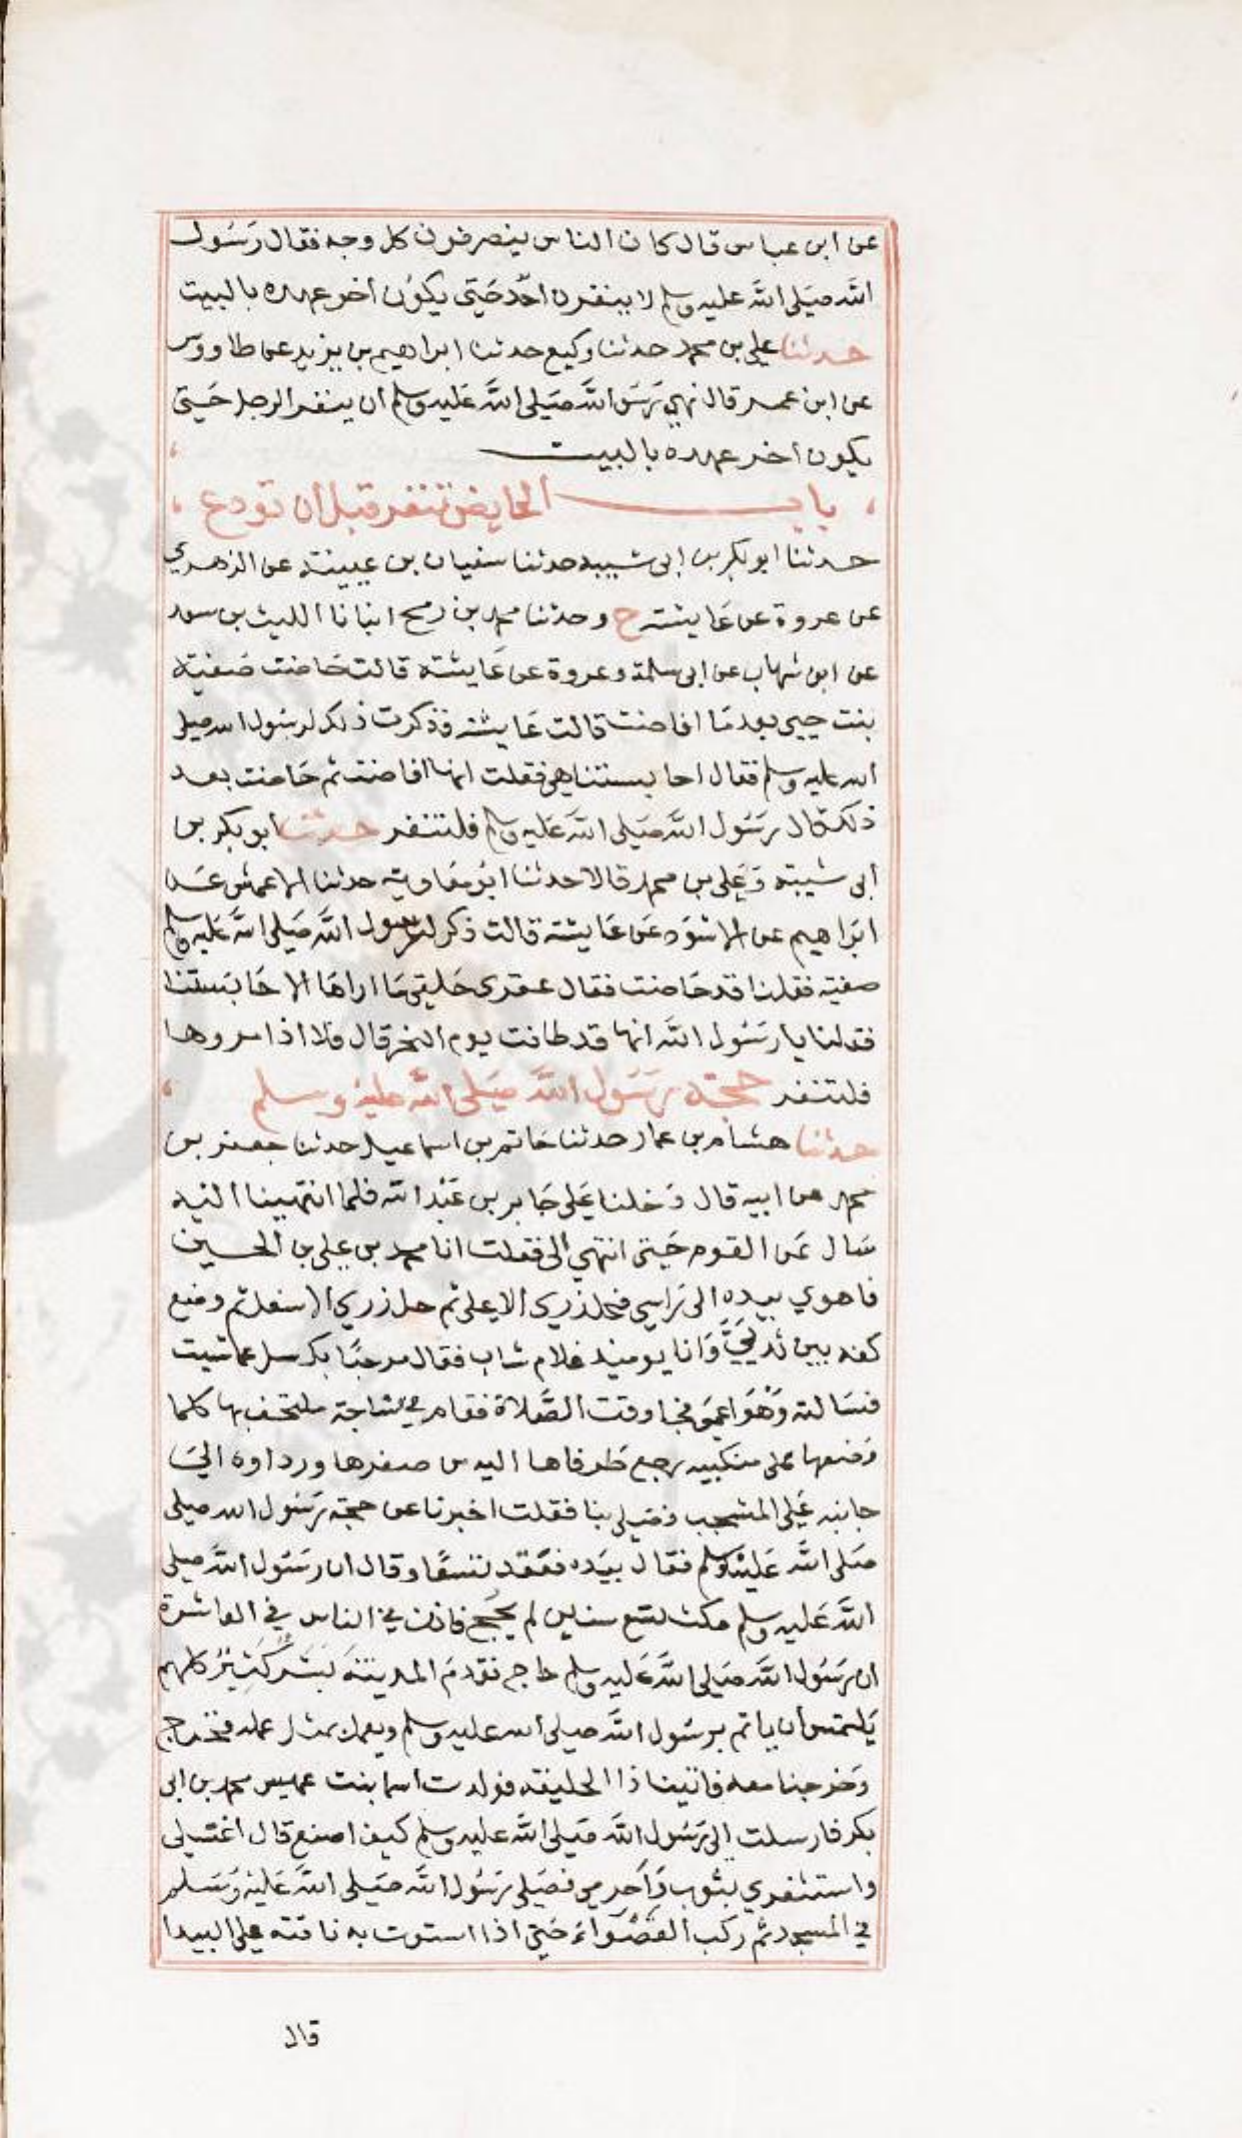 عن ابن عباس قال كان الناس ينصرفون كل وجه فقال رَسُول
الله صَلى الله عليه وسلم لا ينفرن احَد حَتى يكوُن اخر عهده بالبيت
حدثنا علي بن محمد حدثنا وكيع حدثنا ابراهيم بن يزيد عن طاووس
عن ابن عمر قال نهي رَسُول الله صَلى الله عَليه وسلم ان ينفر الرجل حَتى
يكون اخر عهده بالبيت
باب الحايض تنفر قبل ان تودع
حدثنا ابو بكر بن ابى شيبه حدثنا سفيان بن عيينة عن الزهري
عن عروة عن عَايشة ح وحدثنا محمد بن رمح انبانا الليث بن سعد
عن ابن شهاب عن ابى سلمة وعروة عن عَايشة قالت حَاضت صَفية
بنت حيى بعد مَا افاضت قالت عَايشة فذكرت ذلك لرسُول الله صلى
الله عليه وسلم فقال احابستنا هي فقلت انها افاضت ثم حَاضت بعد
ذلك قال رَسُول الله صَلى الله عَليه وسلم فلتنفر حدثنا ابو بكر بن
أبى شيبة وَعَلى بن محمد قالا حدثنا ابوُ معَاوية حدثنا الاعمش عن
ابَراهيم عن الاسْوَد عَن عَايشة قالت ذكر لرسول الله صَلى الله عَليه وسلم
صفية فقلنا قد حَاضت فقال عقرى حَلقى مَا اراهَا الا حَابسَتنا
فقلنا يا رَسُول الله انها قد طافت يوم النحر قال فلا اذا مروها
فلتنفر حجة رَسُول الله صَلى الله عليه وسلم
حدثنا هشام بن عمار حدثنا حَاتم بن اسماعيل حدثنا جعفر بن
محمد عن ابيه قال دَخلنا عَلى جَابر بن عَبْد الله فلما انتهينا اليه
سَال عَن القوم حَتى انتهي الى فقلت انا محمد بن علي بن الحسين
فاهوي بيده الى رَاسي فحل زري الاعلى ثم حل زري الاسفل ثم وضع
كفه بين ثدييَّ وَانا يوميذ غلام شاب فقال مرحبًا بك سل عما شيت
فسَالته وَهْوَ اعمى فجا وقت الصَّلاة فقام في نساجة ملتحف بها كلما
وَضعها على منكبيه رجع طَرفاها اليه من صغرها ورداوه الىَ
جانبه عَلى المشجب فصَلى بنا فقلت اخبرنا عن حجة رَسُول الله صلى
صَلى الله عَليْه وَسلم فقال بيَده فعَقد تسعًا وقال ان رَسُول الله صلى
الله عَليه وسلم مكث تسع سنين لم يحَج فاذن في الناس في العاشرة
ان رَسُول الله صَلى الله عَليه وسلم حاج فقدمَ المدينة بَشَر كَثِيرُ كلهم
يَلتمس ان ياتم برسُول الله صلى الله عليه وسلم ويعمل بمثل عمله فخرج
وَخرجنا معه فاتينا ذا الحليفه فولدت اسما بنت عميس محمد بن ابى
بكر فارسلت الى رَسُول الله صَلى الله عليه وسلم كيف اصنع قال اغتسلى
واستثفري بثوب وَاَحرمي فصَلى رَسُول الله صَلى الله عَليْه وَسَلم
في المسجد ثم ركب القصْوَاءَ حَتى اذا استوت به ناقته على البيدا
قال